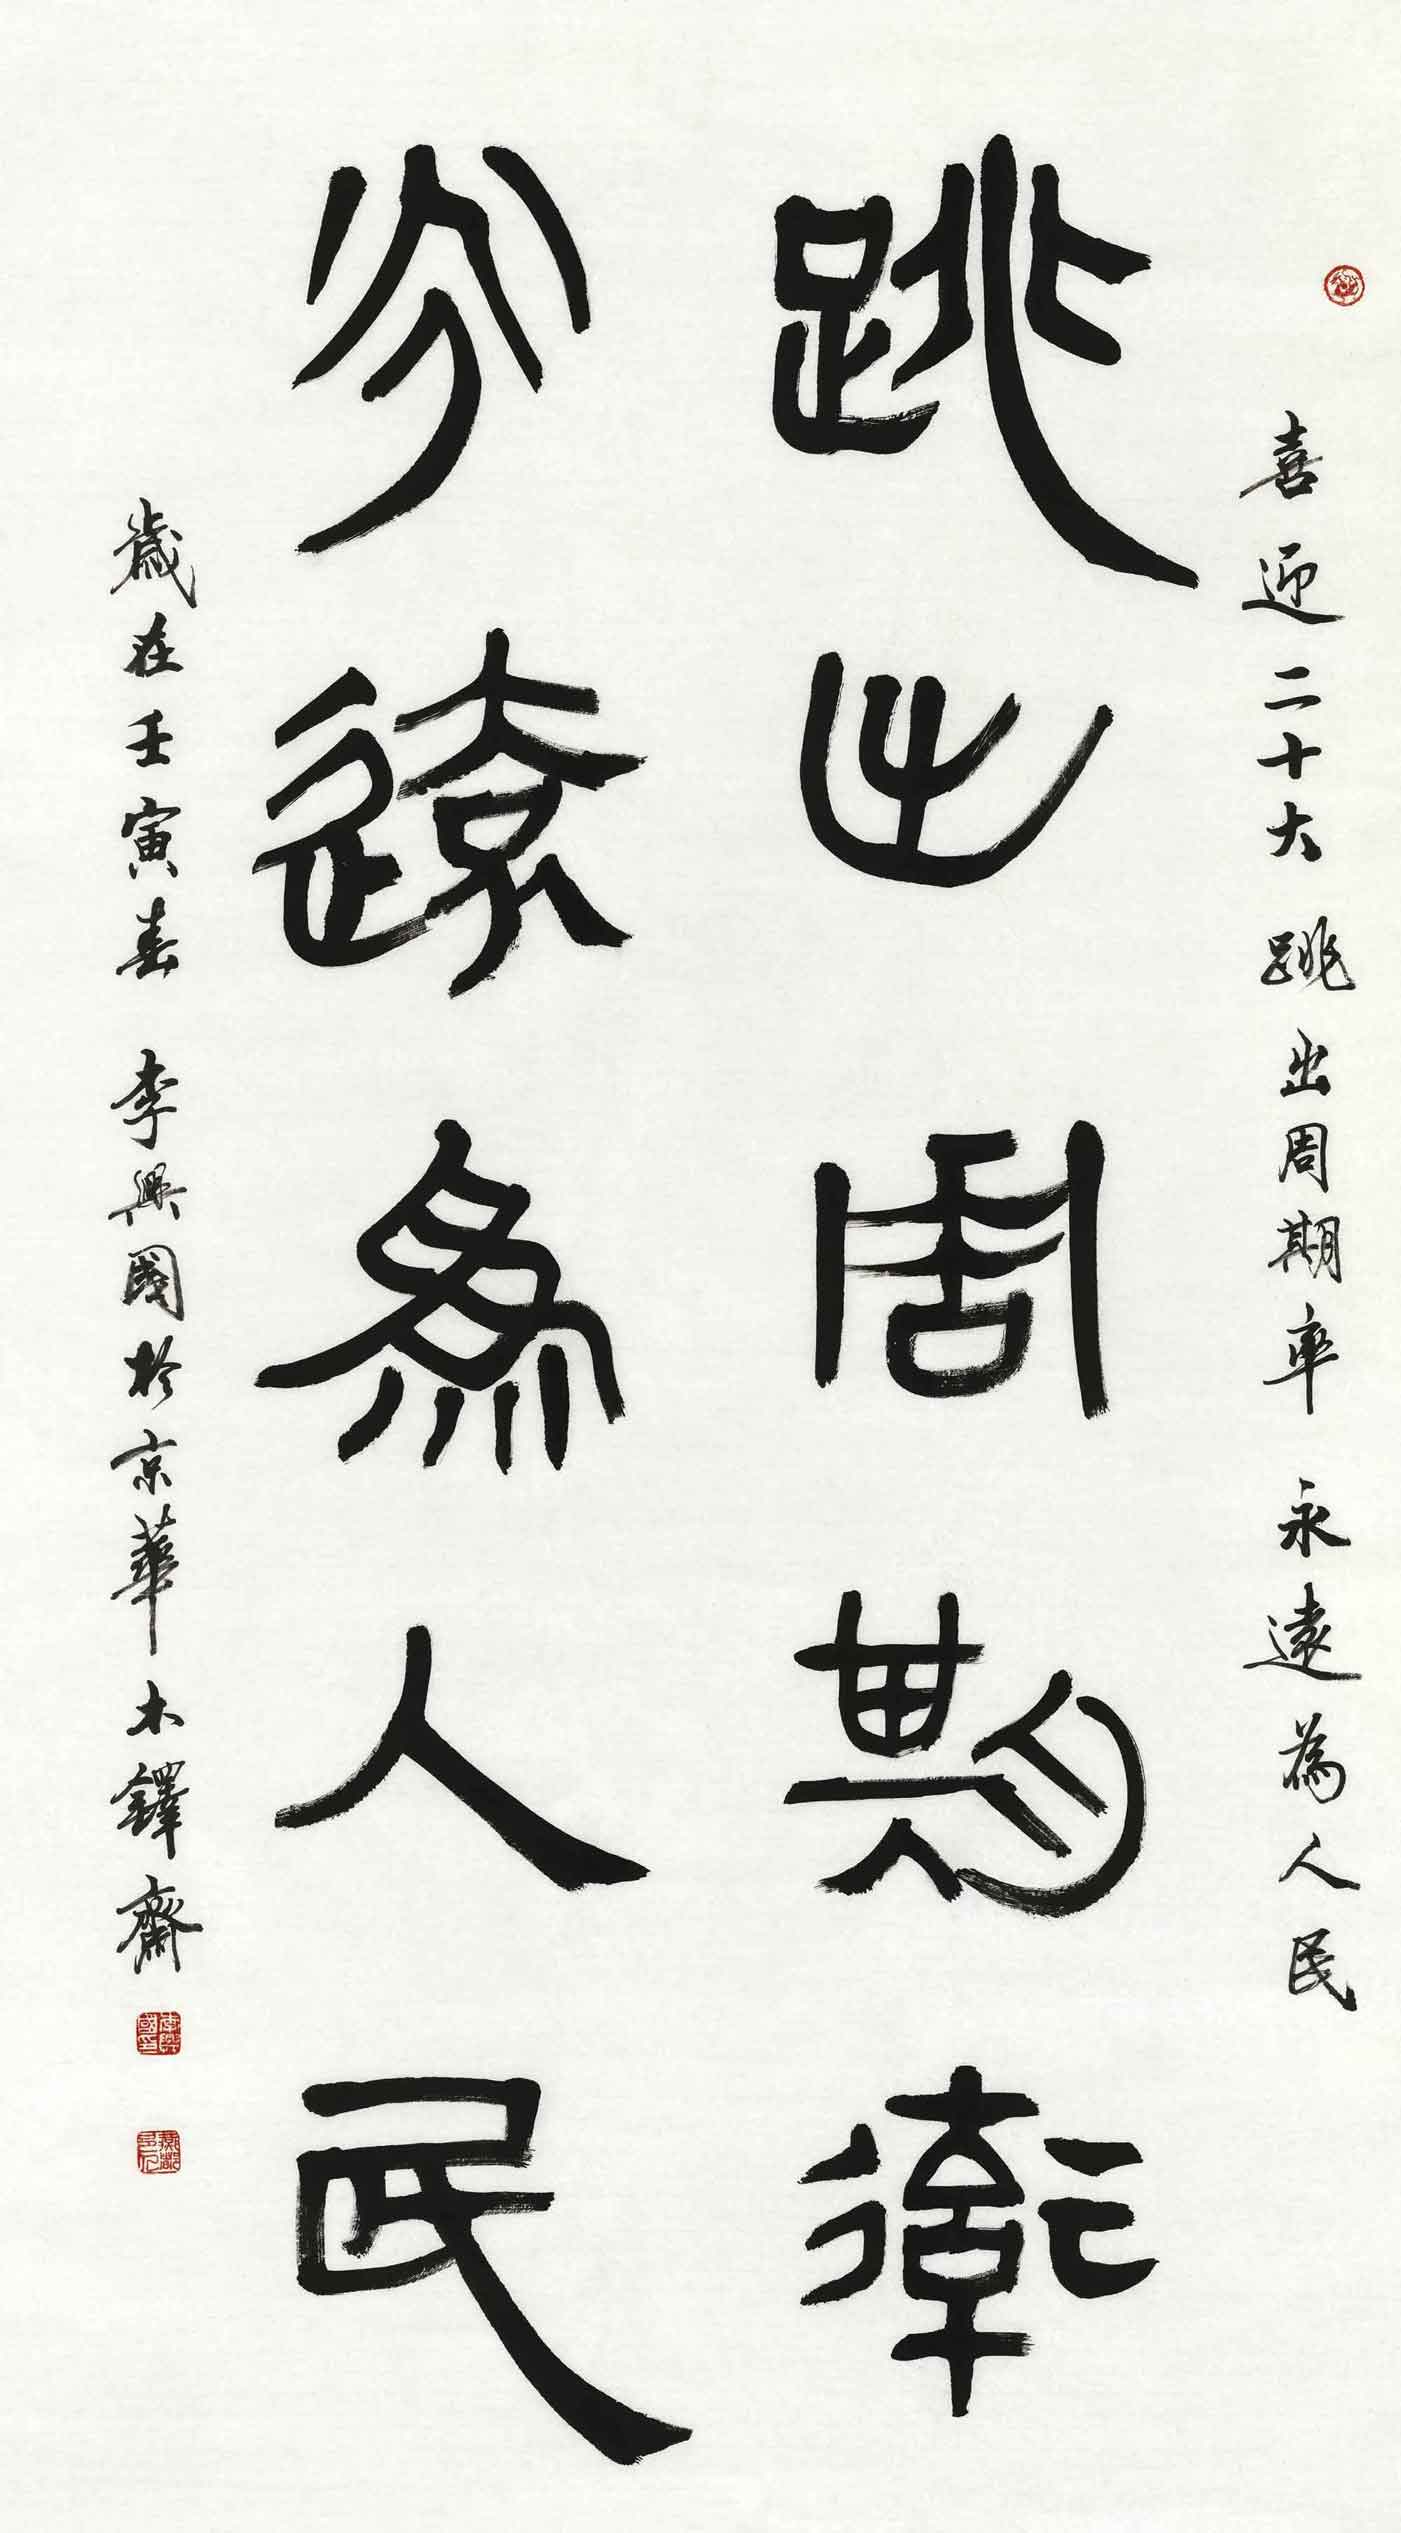 喜迎二十大 跳出周期率 永遠為人民
跳出周期率
永遠為人民
歲在壬寅春 李興國於京華木鐸齋
李興國印